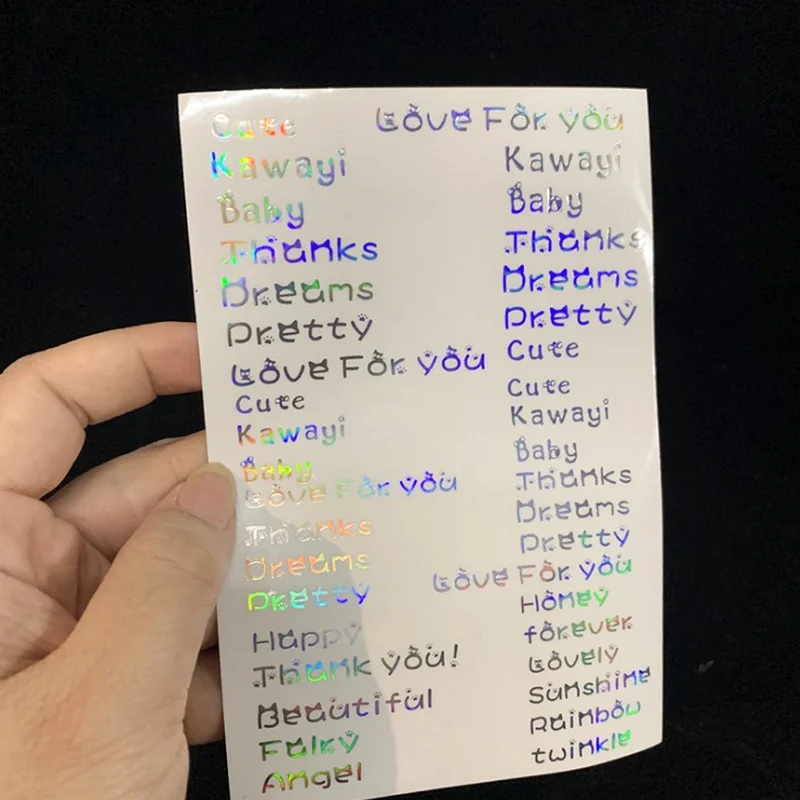 Cute
Kawayi
Baby
Thanks
Dreams
Pretty
Love For you
Cute
Kawayi
Baby
Love For you
Thanks
Dreams
Pretty
Happy
Thank you!
Beautiful
Falry
Angel
Love For you
Kawayi
Baby
Thanks
Dreams
Pretty
Cute
Cute
Kawayi
Baby
Thanks
Dreams
Pretty
Love For you
Honey
forever
Lovely
Sunshine
Rainbow
twinkle